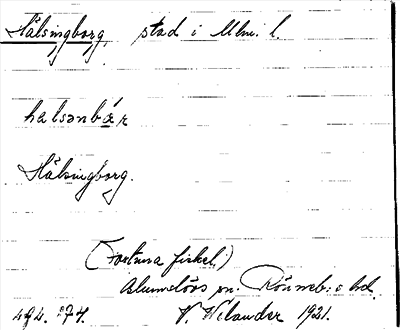 Hälsingborg, stad i Mlm. l.
halsənbár
Hälsingborg.
(Fortuna fiskel.)
Alunnslövs sn. Rönneb:s hd.
V. Welander 1921.